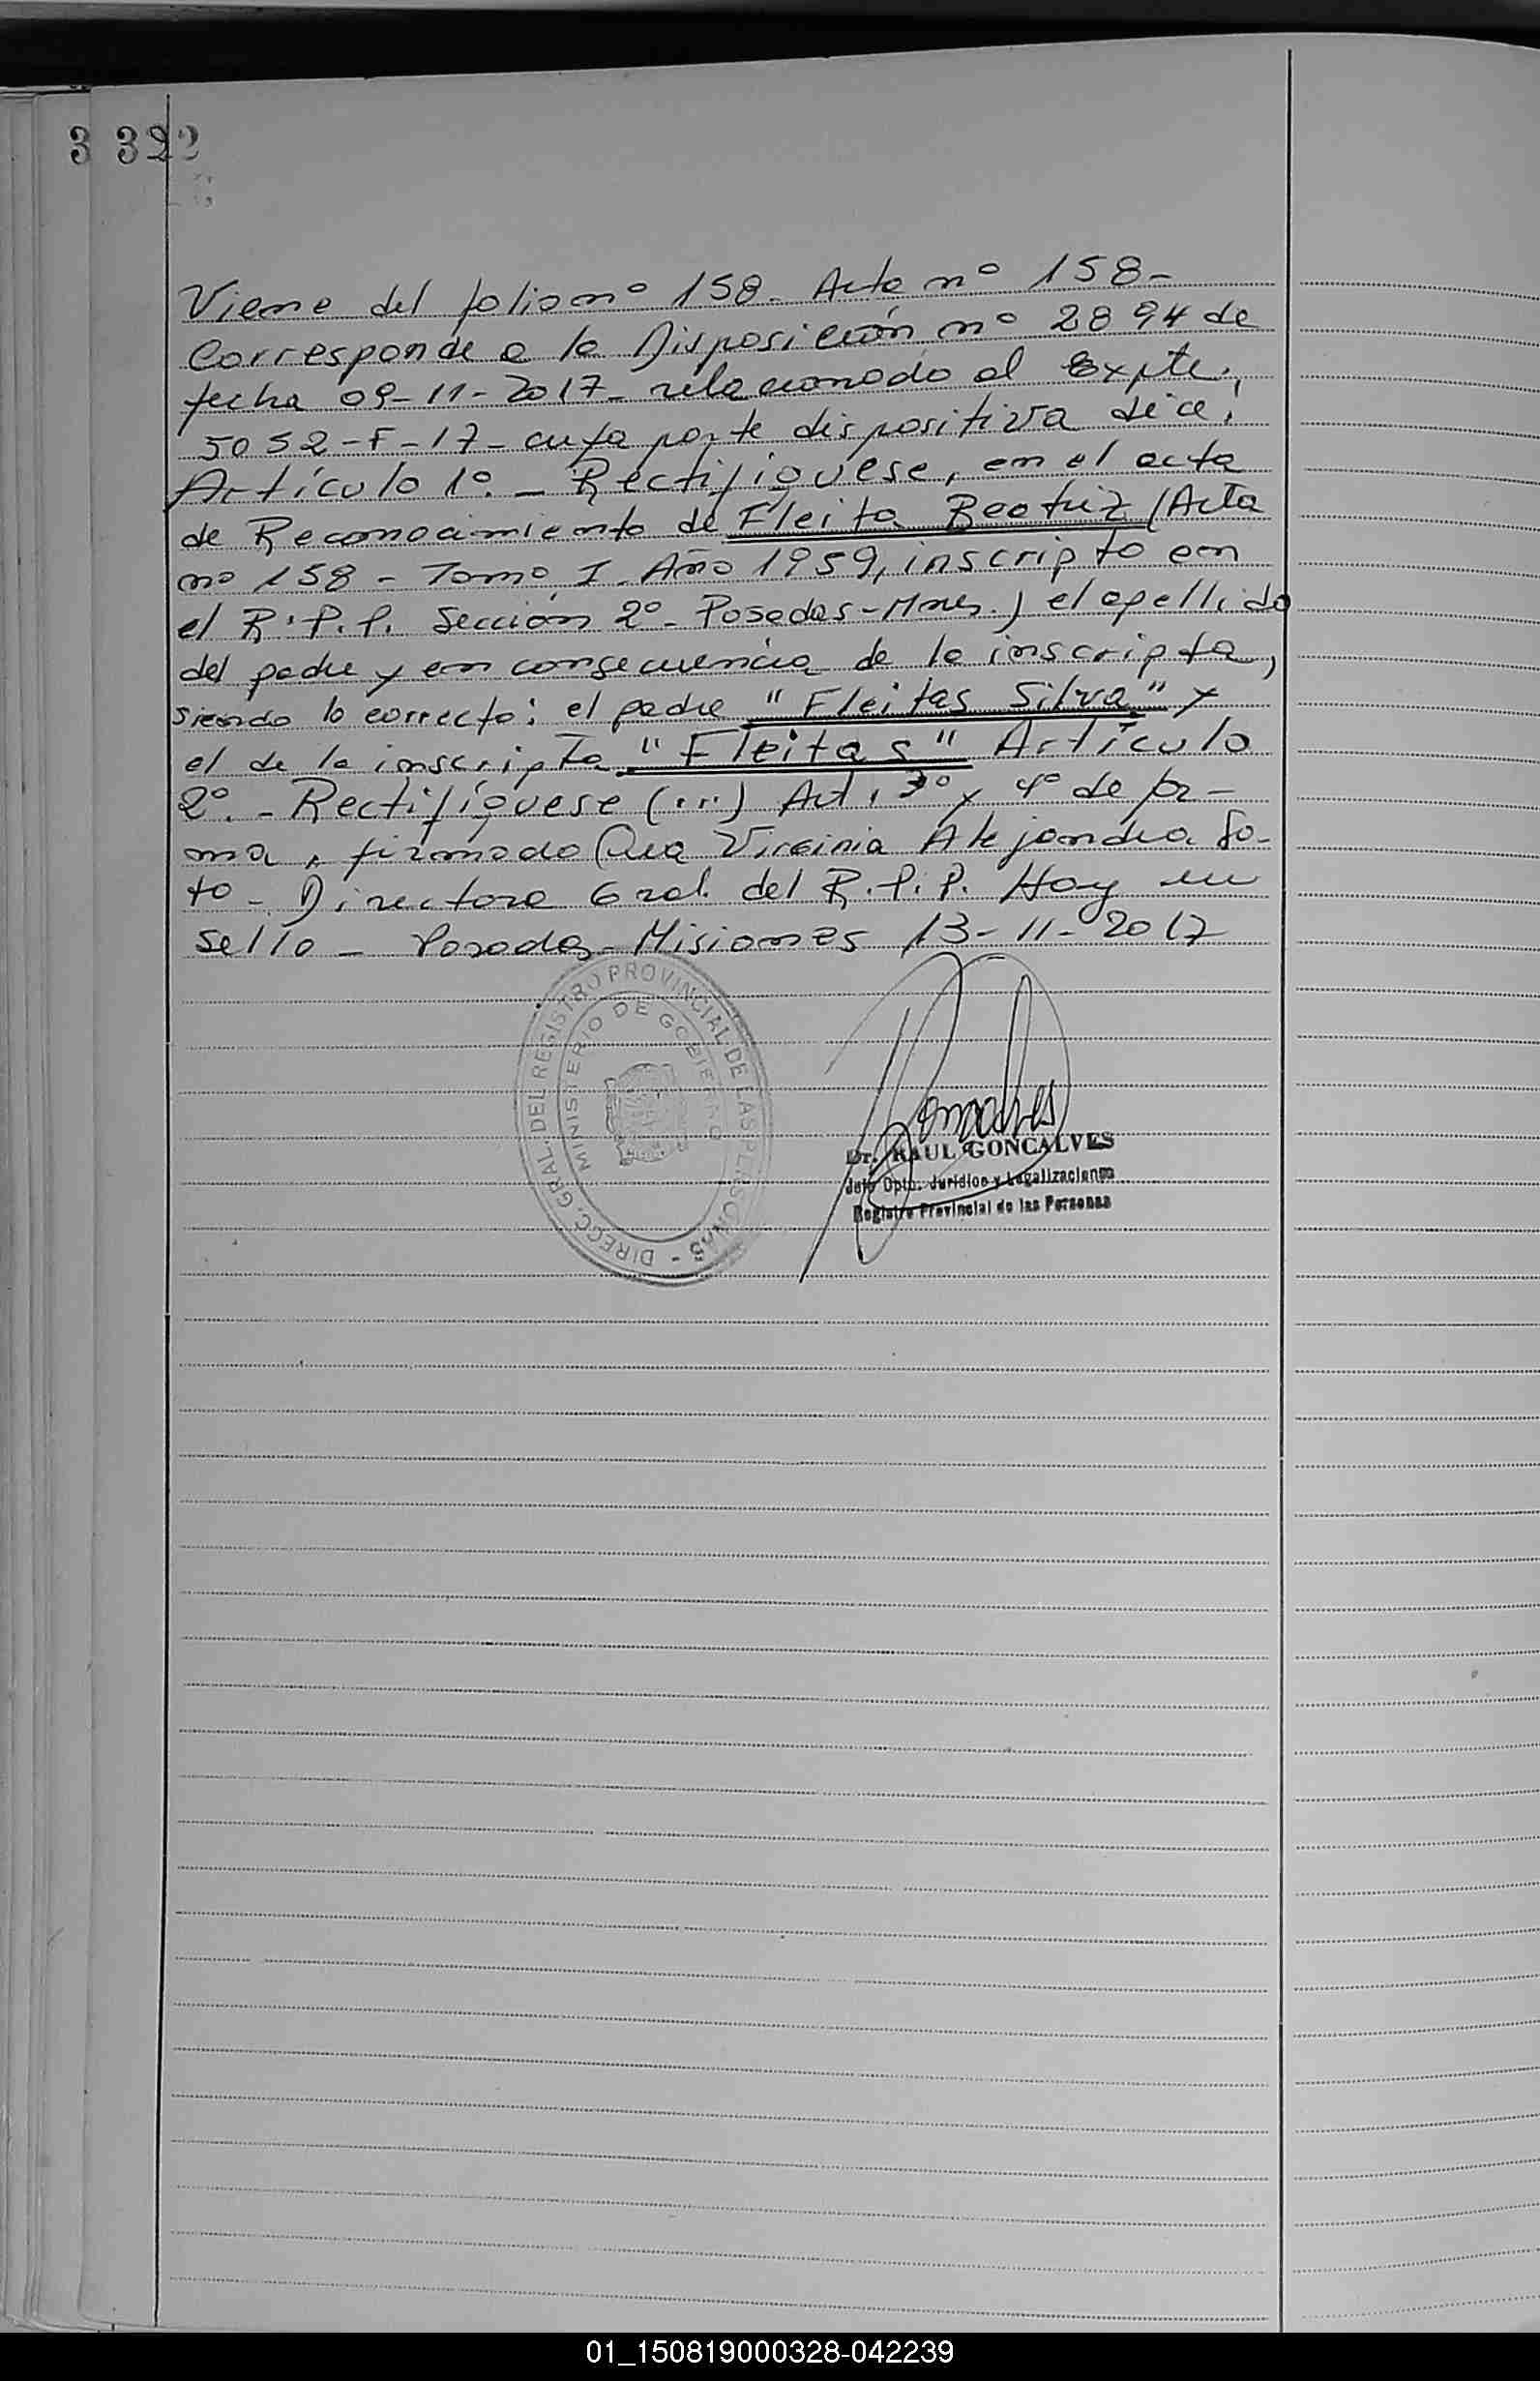 3 322
Viene del folio nº 158. Acta nº 158-
Corresponde a la Disposición nº 2894 de
fecha 09-11-2017- relacionado al Expte.
5052-F-17- cuya parte dispositiva dice:
Artículo 1º.- Rectifíquese, en el acta
de Reconocimiento de Fleita Beatriz (Acta
nº 158 - Tomo I. Año 1959, inscripto en
el R.P.P. Sección 2º- Posadas-Mnes.) el apellido
del padre y en consecuencia de la inscripta,
siendo lo correcto: el padre "Fleitas Silva" y
el de la inscripta "Fleitas" Artículo
2º.- Rectifíquese (...) Art. 3º y 4º de for-
ma, firmado Virginia Alejandra So-
to - Directora Gral. del R.P.P. Hay un
sello - Posadas-Misiones 13-11-2017
DIRECC. GRAL. DEL REGISTRO PROVINCIAL DE LAS PERSONAS -
MINISTERIO DE GOBIERNO
Goncalves
Dr. RAUL GONCALVES
Jefe Dpto. Jurídico y Legalizaciones
Registro Provincial de las Personas
01_150819000328-042239